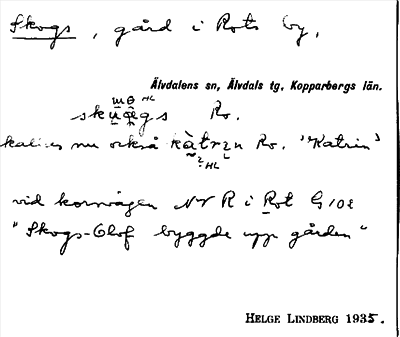 Skogs, gård i Rots by.
Älvdalens sn, Älvdals tg, Kopparbergs län.
Ro.
kallas nu också kàtrın Ro. "Katrin"
vid korsvägen NV R i Rot G 102
"Skogs-Olof byggde upp gården"
HELGE LINDBERG 1935.